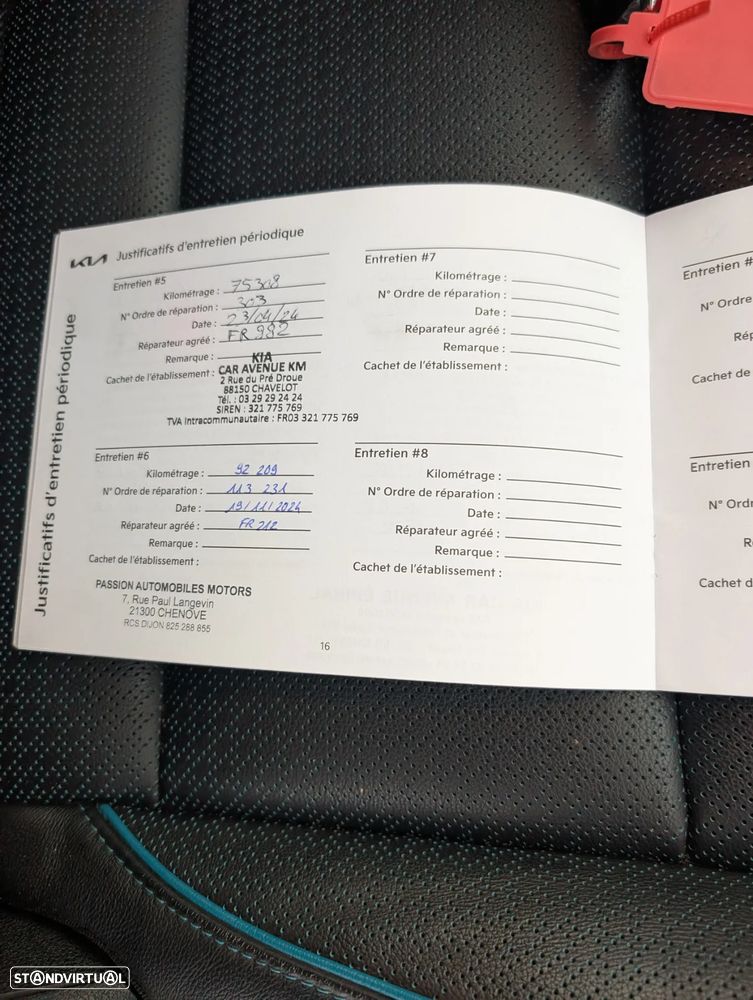 KIA Justificatifs d'entretien périodique
Justificatifs d'entretien périodique
Entretien #5
Kilométrage : 75308
N° Ordre de réparation : 303
Date : 23/04/24
Réparateur agréé : FR 982
Remarque :
Cachet de l'établissement :
KIA
CAR AVENUE KM
2 Rue du Pré Droue
88150 CHAVELOT
Tél. : 03 29 29 24 24
SIREN : 321 775 769
TVA Intracommunautaire : FR03 321 775 769
Entretien #6
Kilométrage : 92 209
N° Ordre de réparation : 113 231
Date : 19/11/2024
Réparateur agréé : FR 212
Remarque :
Cachet de l'établissement :
PASSION AUTOMOBILES MOTORS
7, Rue Paul Langevin
21300 CHENOVE
RCS DIJON 825 268 855
Entretien #7
Kilométrage :
N° Ordre de réparation :
Date :
Réparateur agréé :
Remarque :
Cachet de l'établissement :
Entretien #8
Kilométrage :
N° Ordre de réparation :
Date :
Réparateur agréé :
Remarque :
Cachet de l'établissement :
16
Entretien #
N° Ordre
Rép
Cachet de
Entretien
N° Ordre
R
Cachet d
STANDVIRTUAL